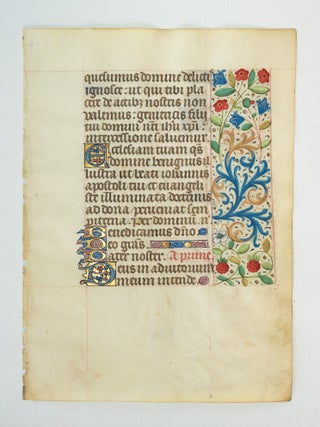 quesumus domine delicti
ignosce: ut qui tibi pla
cere de actibus nostris non
valemus: genitricis filij
tui domini nri ihu xpi:
intercessione salvemur.
Ecclesiam tuam qs
domine benignus il
lustra ut beati iohannis
apostoli tui et euangele
ste illuminata doctrinis
ad dona perveniat sem
piterna. per dominum.
Benedicamus dno
Deo grās.
Pater noster. A prime
Deus in adiutorium
meum intende